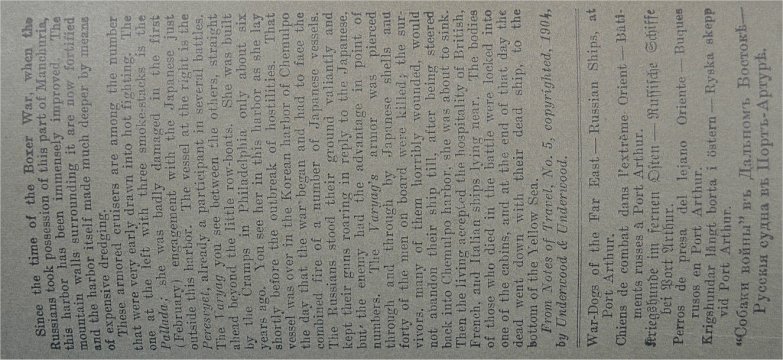 Since the time of the Boxer War, when the
Russians took possession of this part of Manchuria,
this harbor has been immensely improved. The
mountain walls surrounding it are now fortified
and the harbor itself made much deeper by means
of expensive dredging.
These armored cruisers are among the number
that were very early drawn into hot fighting. The
one at the left with three smoke-stacks is the
Pallada; she was badly damaged in the first
(February) engagement with the Japanese just
outside this harbor. The vessel at the right is the
Peresvyet, already a participant in several battles.
The Varyag you see between the others, straight
ahead beyond the little row-boats. She was built
by the Cramps in Philadelphia only about six
years ago. You see her in this harbor as she lay
shortly before the outbreak of hostilities. That
vessel was over in the Korean harbor of Chemulpo
the day that the war began and had to face the
combined fire of a number of Japanese vessels.
The Russians stood their ground valiantly and
kept their guns roaring in reply to the Japanese,
but the enemy had the advantage in point of
numbers. The Varyag's armor was pierced
through and through by Japanese shells and
forty of the men on board were killed; the sur-
vivors, many of them horribly wounded, would
not abandon their ship till, after being steered
back into Chemulpo harbor, she was about to sink.
Then the living accepted the hospitality of British,
French, and Italian ships lying near. The bodies
of those who died in the battle were locked into
one of the cabins, and at the end of that day the
dead went down with their dead ship, to the
bottom of the Yellow Sea.
From Notes of Travel, No. 5, copyrighted, 1904,
by Underwood & Underwood.
War-Dogs of the Far East—Russian Ships, at
Port Arthur.
Chiens de combat dans l'extrème Orient—Bâti-
ments russes à Port Arthur.
Kriegshunde im fernen Osten—Russische Schiffe
bei Port Arthur.
Perros de presa del lejano Oriente—Buques
rusos en Port Arthur.
Krigshundar långt borta i östern—Ryska skepp
vid Port Arthur.
“Собаки войны” въ Дальномъ Востокѣ—
Русскія судна въ Портъ-Артурѣ.